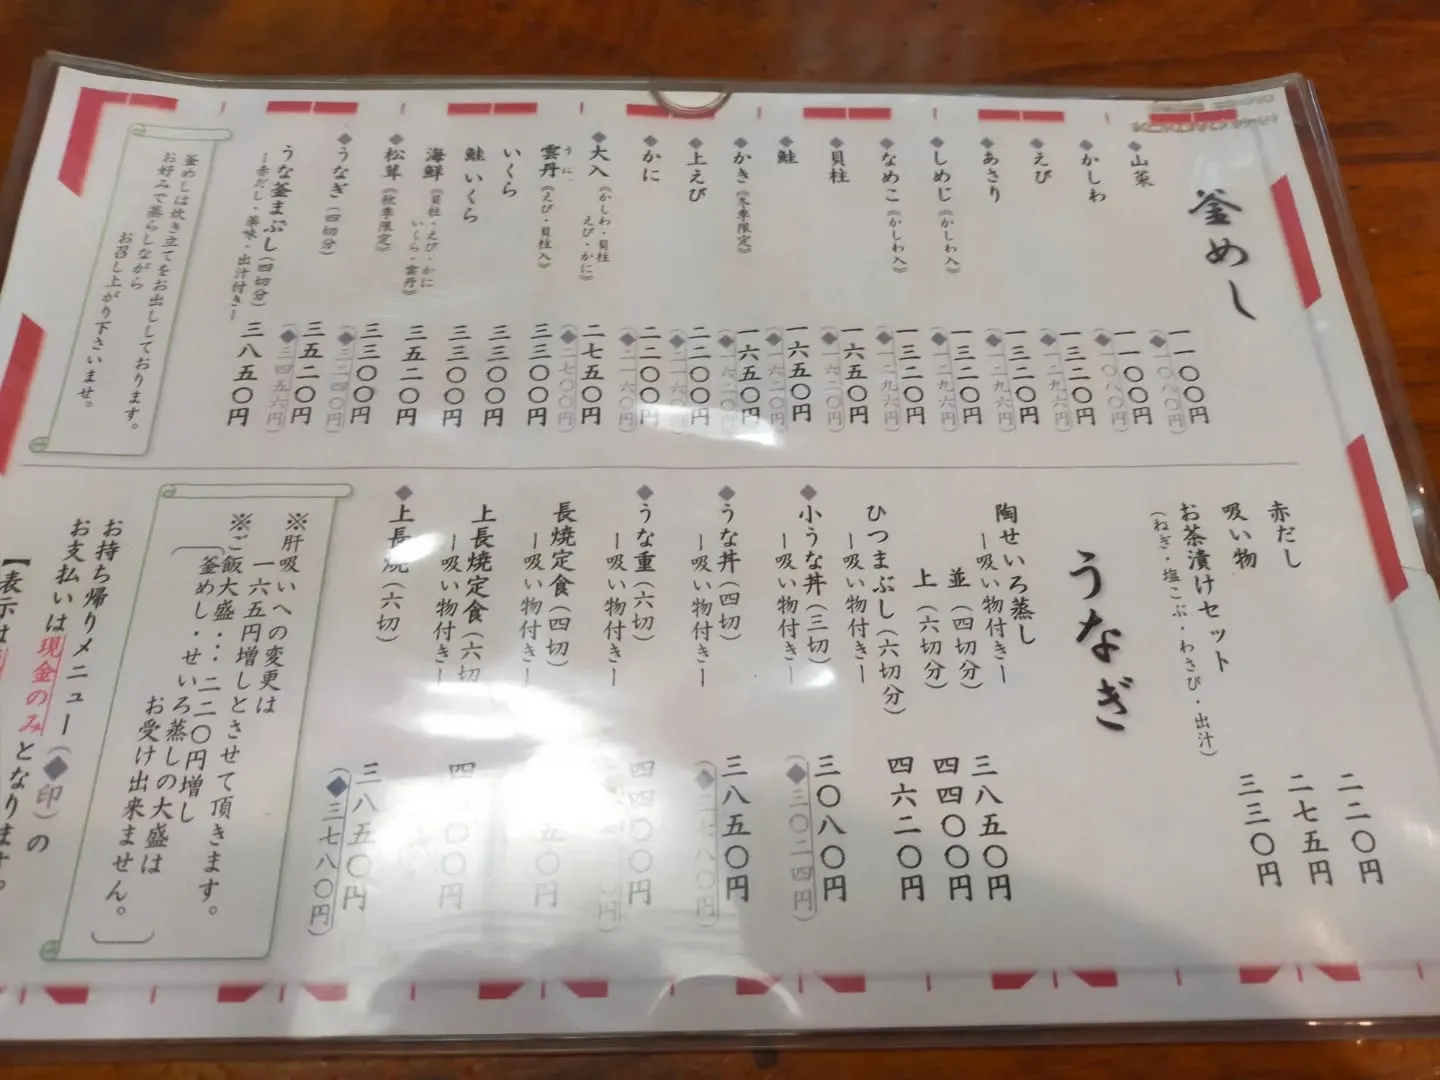 釜めし
◆山菜 一一〇〇円
(◆一〇八〇円)
◆かしわ 一一〇〇円
(◆一〇八〇円)
◆えび 一三二〇円
(◆一二九六円)
◆あさり 一三二〇円
(◆一二九六円)
◆しめじ《かしわ入》 一三二〇円
(◆一二九六円)
◆なめこ《かしわ入》 一三二〇円
(◆一二九六円)
◆貝柱 一六五〇円
(◆一六二〇円)
◆鮭 一六五〇円
(◆一六二〇円)
◆かき《冬季限定》 一六五〇円
(◆一六二〇円)
◆上えび 二二〇〇円
(◆二一六〇円)
◆かに 二二〇〇円
(◆二一六〇円)
◆大入《かしわ・貝柱
えび・かに》 二七五〇円
(◆二七〇〇円)
うに
雲丹《えび・貝柱入》 三三〇〇円
いくら 三三〇〇円
鮭いくら 三三〇〇円
海鮮《貝柱・えび・かに
いくら・雲丹》 三五二〇円
◆松茸《秋季限定》 三三〇〇円
(◆三二四〇円)
◆うなぎ(四切分) 三五二〇円
(◆三四五六円)
うな釜まぶし(四切分) 三八五〇円
ー赤だし・薬味・出汁付きー
釜めしは炊き立てをお出ししております。
お好みで蒸らしながら
お召し上がり下さいませ。
赤だし 二二〇円
吸い物 二七五円
お茶漬けセット 三三〇円
(ねぎ・塩こぶ・わさび・出汁)
うなぎ
陶せいろ蒸し
ー吸い物付きー
並(四切分) 三八五〇円
上(六切分) 四四〇〇円
ひつまぶし(六切分) 四六二〇円
ー吸い物付きー
◆小うな丼(三切) 三〇八〇円
ー吸い物付きー (◆三〇二四円)
◆うな丼(四切) 三八五〇円
ー吸い物付きー (◆三七八〇円)
◆うな重(六切) 四四〇〇円
ー吸い物付きー
長焼定食(四切) 五〇円
ー吸い物付きー
上長焼定食(六切) 〇〇円
ー吸い物付きー
◆上長焼(六切) 三八五〇円
(◆三七八〇円)
※肝吸いへの変更は
一六五円増しとさせて頂きます。
※ご飯大盛・・・二二〇円増し
(釜めし・せいろ蒸しの大盛は
お受け出来ません。)
お持ち帰りメニュー(◆印)の
お支払いは現金のみとなります。
【表示は